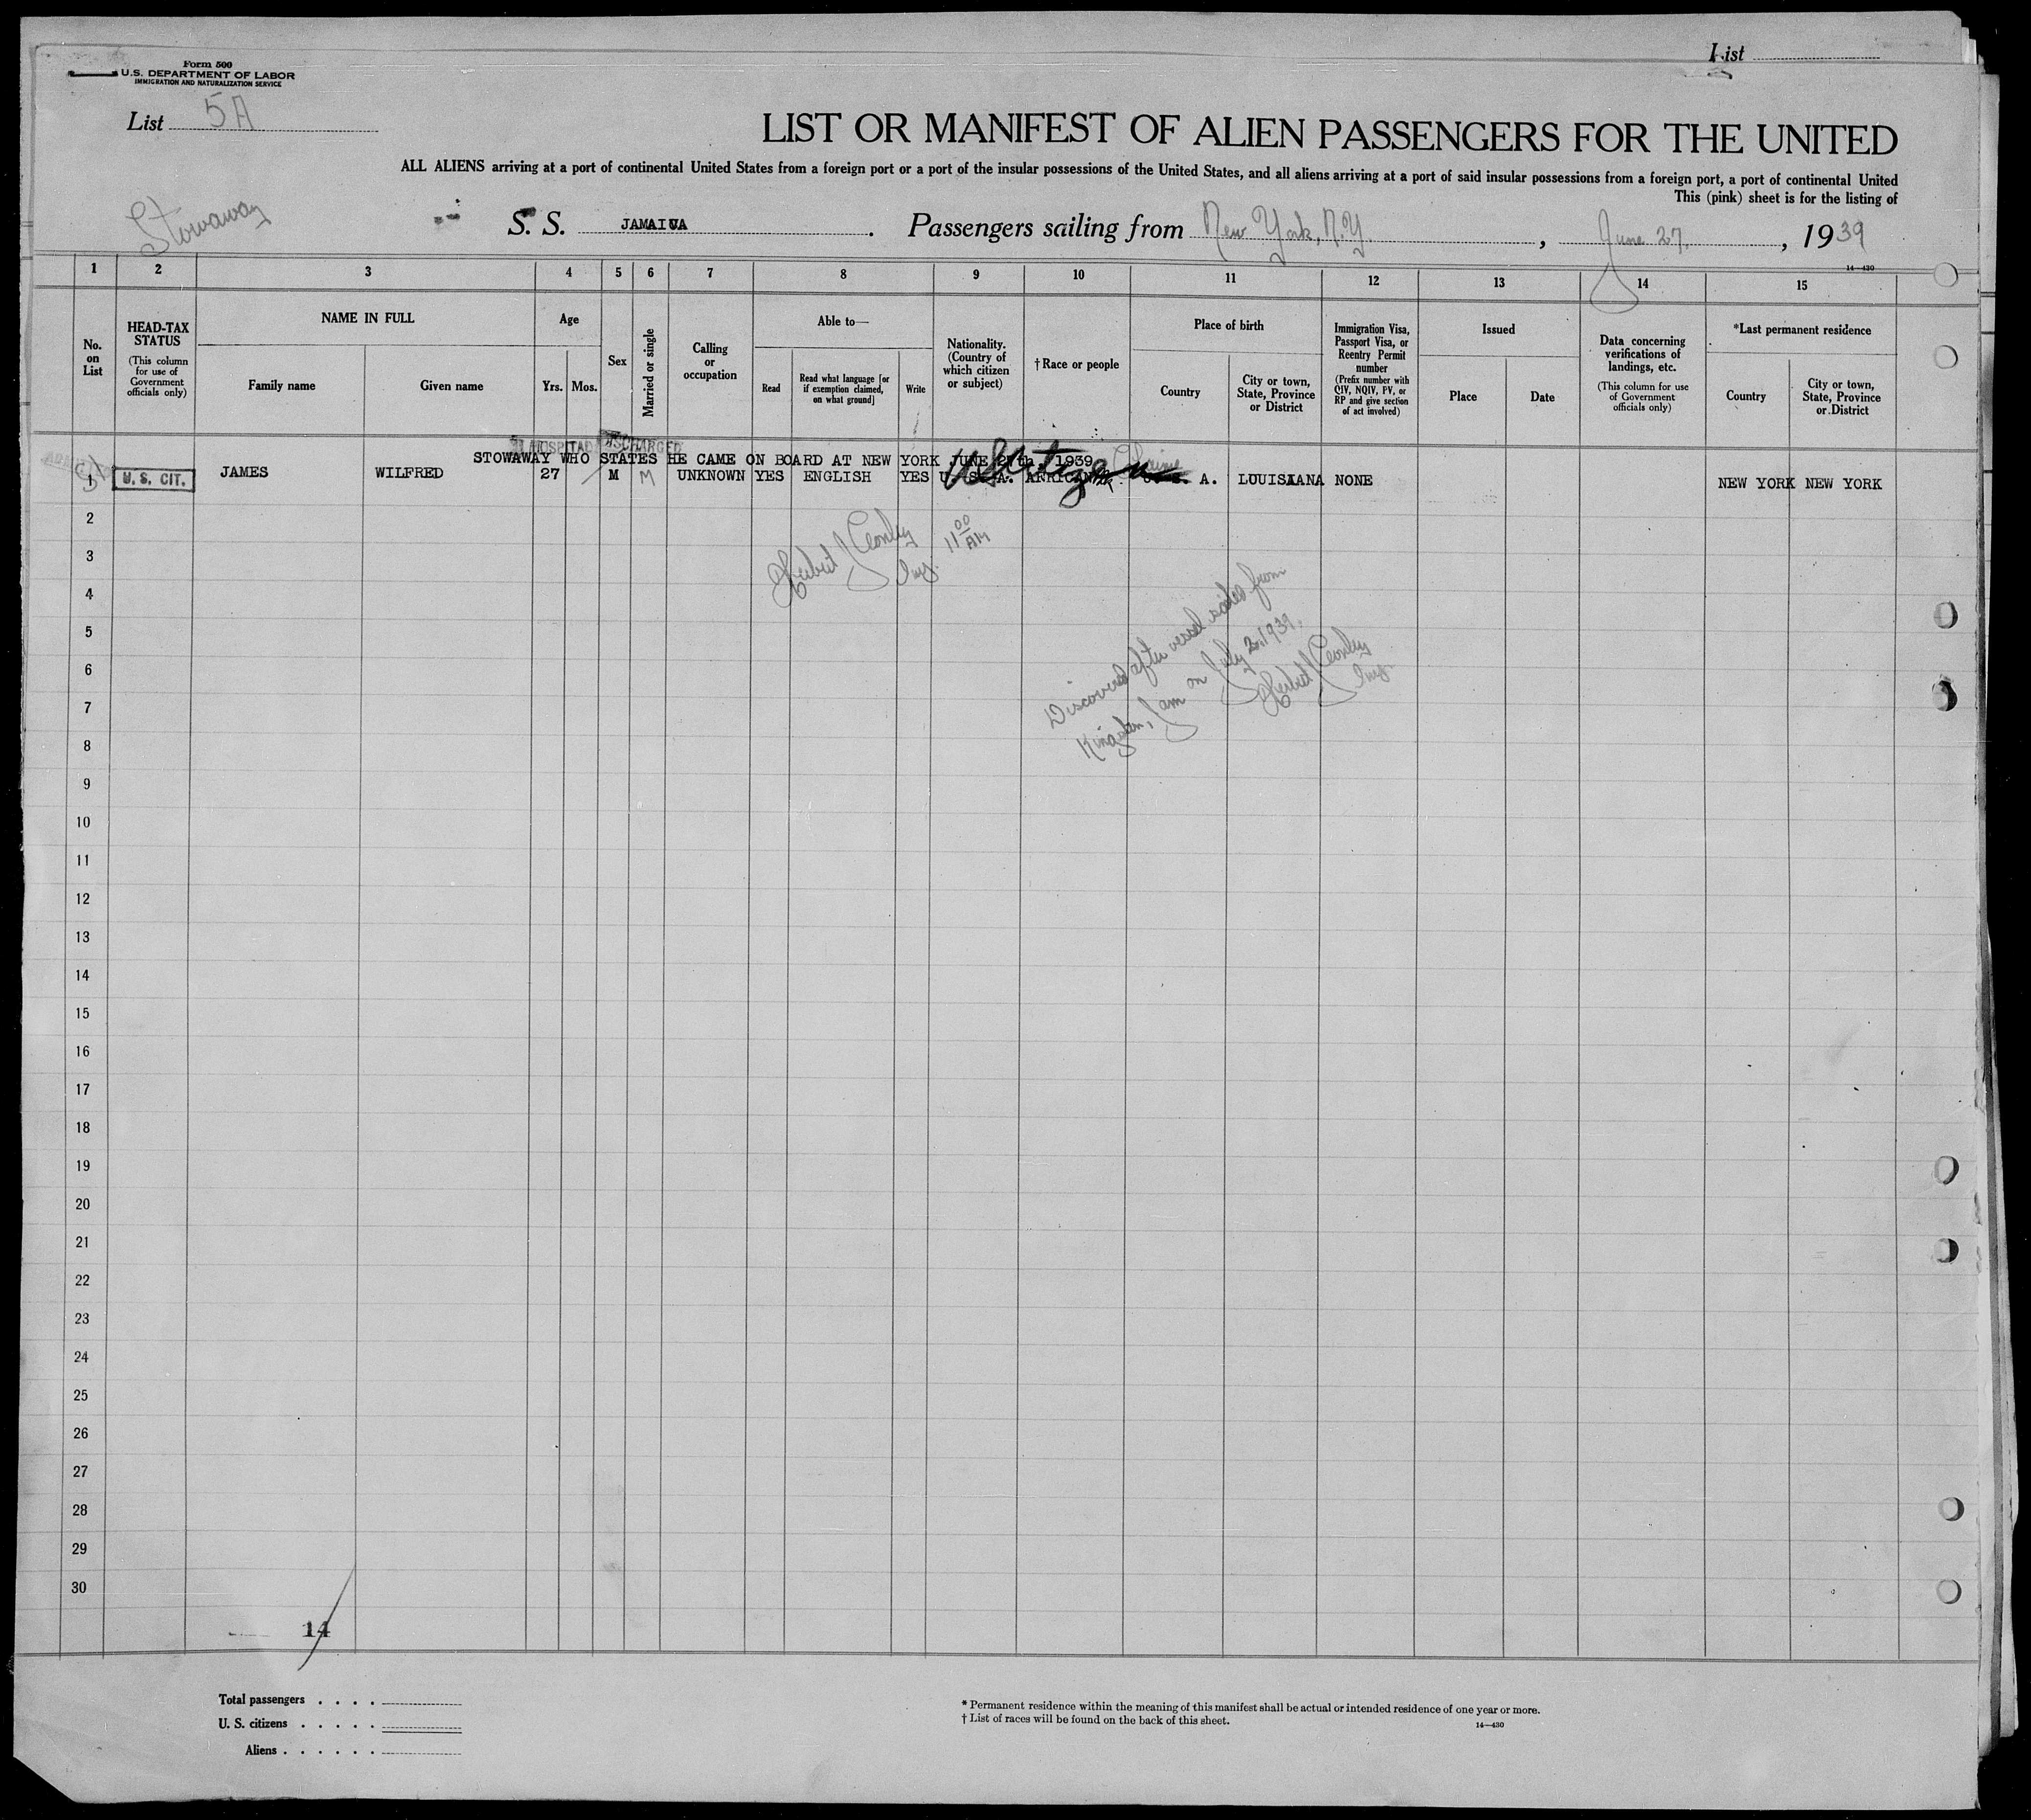 List
Form 500
U.S. DEPARTMENT OF LABOR
IMMIGRATION AND NATURALIZATION SERVICE
List 5A
LIST OR MANIFEST OF ALIEN PASSENGERS FOR THE UNITED
ALL ALIENS arriving at a port of continental United States from a foreign port or a port of the insular possessions of the United States, and all aliens arriving at a port of said insular possessions from a foreign port, a port of continental United
This (pink) sheet is for the listing of
Stowaway
S. S. JAMAICA. Passengers sailing from New York, N.Y., June 27, 1939
14—430
1 2 3 4 5 6 7 8 9 10 11 12 13 14 15
No. on List
HEAD-TAX STATUS
(This column for use of Government officials only)
NAME IN FULL
Family name
Given name
Age
Yrs.
Mos.
Sex
Married or single
Calling or occupation
Able to—
Read
Read what language [or if exemption claimed, on what ground]
Write
Nationality. (Country of which citizen or subject)
†Race or people
Place of birth
Country
City or town, State, Province or District
Immigration Visa, Passport Visa, or Reentry Permit number
(Prefix number with QIV, NQIV, PV, or RP and give section of act involved)
Issued
Place
Date
Data concerning verifications of landings, etc.
(This column for use of Government officials only)
*Last permanent residence
Country
City or town, State, Province or District
HOSPITAL DISCHARGED
STOWAWAY WHO STATES HE CAME ON BOARD AT NEW YORK JUNE 27th 1939
US Citizen
1 U. S. CIT. JAMES WILFRED 27 M M UNKNOWN YES ENGLISH YES U. S. A. AFRICAN U. S. A. LOUISIANA NONE NEW YORK NEW YORK
2
Herbert J Conley
Insp.
11 00 AM
3
4
5
Discovered after vessel sailed from
Kingston, Jam on July 2, 1939.
Herbert J Conley
Insp.
6
7
8
9
10
11
12
13
14
15
16
17
18
19
20
21
22
23
24
25
26
27
28
29
30
14
Total passengers . . . .
U. S. citizens . . . . .
Aliens . . . . . .
* Permanent residence within the meaning of this manifest shall be actual or intended residence of one year or more.
† List of races will be found on the back of this sheet.
14—430